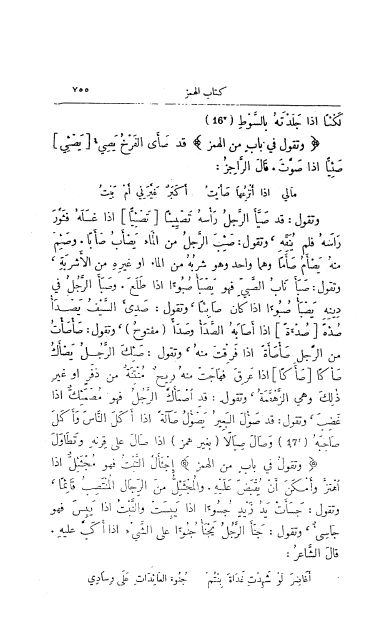 كتاب الهمز ٧٥٥
لَكْئًا اذا جَلدْتَهُ بالسَّوْطِ (16ʳ)
﴿ وتقول في باب من الهمز ﴾ قد صَأَى الفَرْخُ يَصِيْ [ يَصْئِي ]
صَئِيًّا اذا صَوَّتَ. قال الرَّاجزُ:
مالي اذا أَنْزِعُها صَأَيْتُ أَكِبَرٌ غيَّرَني أَمْ بَيْتُ
وتقول: قد صَيَّأَ الرَّجلُ رأْسَهُ تَصْيِيئًا [ تَصْيِئًا ] اذا غسلهُ فثوَّر
رأسهُ فلم يُنَقِّهِ ‘ وتقول: صَئِبَ الرجلُ من الماء يَصْأَبُ صَأَبًا. وصَئِمَ
منهُ يَصْأَمُ صَأَمًا وهما واحد وهو شربهُ من الماء او غيرهِ من الأشربةِ ‘
وتقول: صَبَأَ نَابُ الصَّبي فهو يَصْبَأُ صُبُوءًا اذا طَلَعَ. وصبأَ الرَّجلُ في
دينهِ يَصْبَأُ صُبُوءًا اذا كان صابئًا ‘ وتقول: صَدِئَ السَّيفُ يَصْدَأُ
صُدْةً [ صُدْءَةً ] اذا اصابهُ الصَّدَأُ وصَدَأً ( مفتوح ) ‘ وتقول: صَأْصَأْتُ
من الرَّجل صَأْصَأَةً اذا فَرِقتَ منهُ ‘ وتقول: صَئِكَ الرَّجلُ يَصْأَكُ
صَأَكًا [ صَأْكًا ] اذا عرِقَ فهاجت منهُ ريحٌ مُنْتِنَةٌ من ذَفَرٍ او غير
ذلك وهي الزُّهْمَةُ ‘ وتقول: قد اصْمَأَكَّ الرَّجلُ فهو مُصْمَئِكٌّ اذا
غضِبَ ‘ وتقول: قد صَؤُلَ البعيرُ يَصْؤُلُ صَآلةً اذا اكل النَّاسَ وأكل
صاحبهُ (17ʳ) وصال صِيالًا ( بغير همز ) اذا صال على قِرنهِ وتَطاوَل
﴿ وتقول في بابٍ من الهمز ﴾ إِجْثَأَلَّ النَّبْتُ فهو مُجْثَئِلٌّ اذا
اهتزَّ وأَمْكنَ أَنْ يُقْبَضَ عَلَيْهِ. والمُجْثَئِلُّ من الرجال المُنْتَصِبُ قائمًا ‘
وتقول: جَسَأَتْ يدُ زَيدٍ جُسُوءًا اذا يبِسَتْ والنَّبْتُ اذا يَبِسَ فهو
جاسِئٌ ‘ وتقول: جَنَأَ الرَّجلُ يَجْنَأُ جُنُوءًا على الشَّيْءِ اذا أَكَبَّ عليهِ.
قال الشَّاعرُ:
أَغاضِرَ لَوْ شَهِدْتِ غَدَاةَ بِنْتُمْ جُنُوءَ العائِدَاتِ عَلَى وِسَادِي